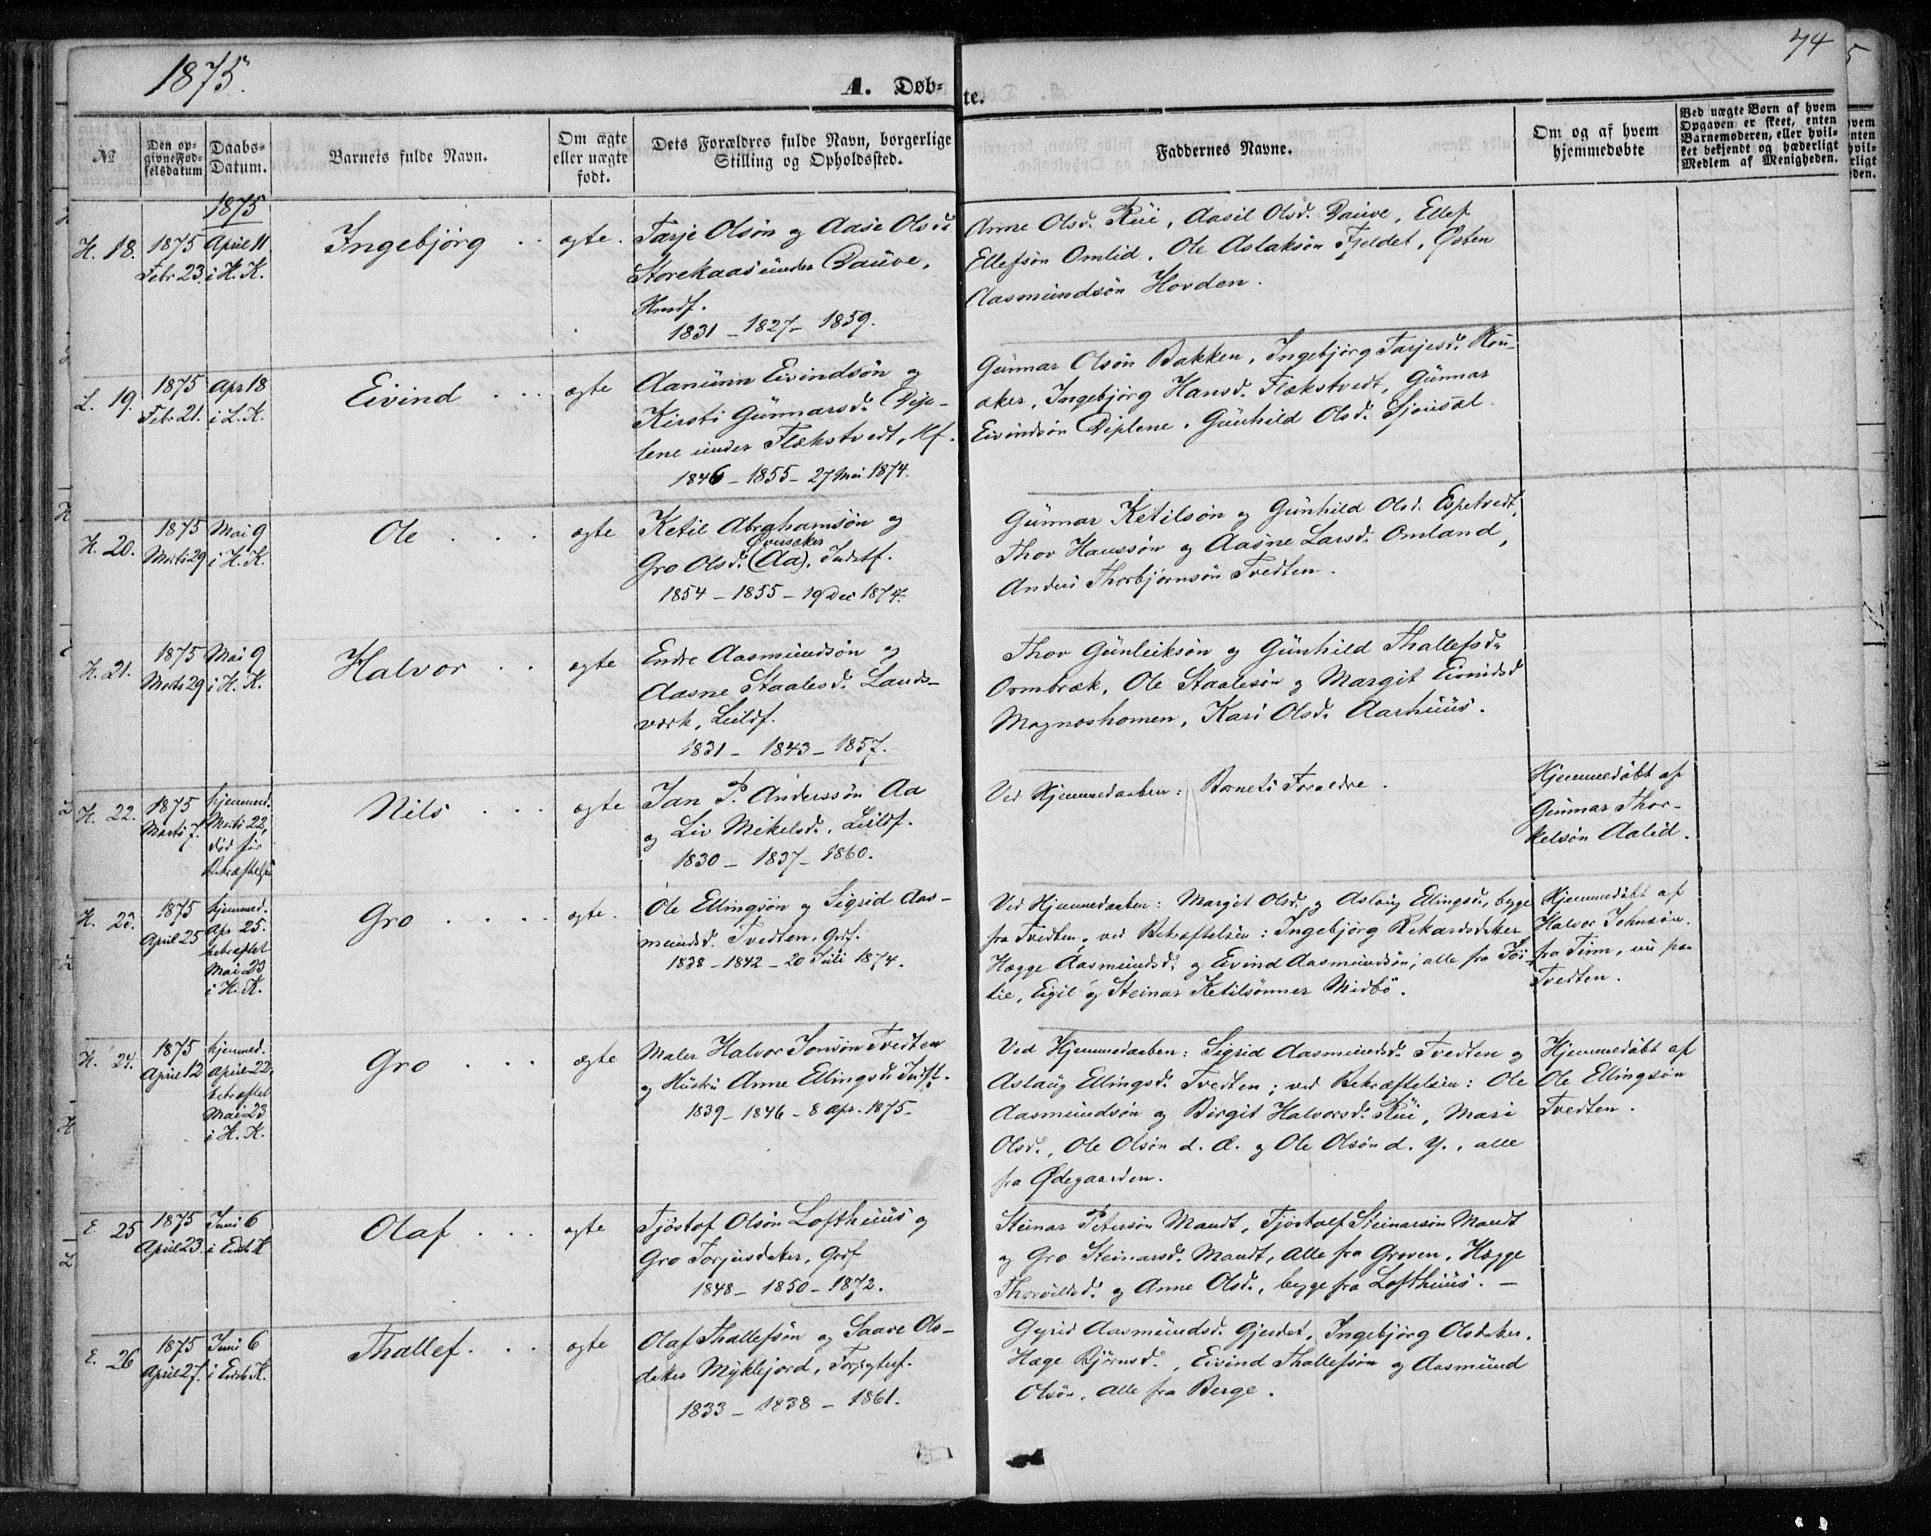 1875.
74
A. Døb-
te.
№
Den op-
givne Fød-
selsdatum
Daabs-
Datum.
Barnets fulde Navn.
Om ægte
eller uægte
født.
Dets Forældres fulde Navn, borgerlige
Stilling og Opholdssted.
Faddernes Navne.
Om og af hvem
hjemmedøbte
Ved uægte Børn af hvem
Opgaven er skeet, enten
Barnemoderen, eller hvil-
ket bekjendt og hæderligt
Medlem af Menigheden.
1875
H. 18.
1875
Febr 23.
April 11
i H. K.
Ingebjörg
ægte.
Tarje Olsön og Aase Olsd.
Storekaas under Dauve,
Hmdf.
1831 - 1827 - 1859.
Anne Olsd. Rui, Aasil Olsd. Dauve, Ellef
Ellefsön Omlid, Ole Aslaksön Fjeldet, Østen
Aasmundsön Hovden.
L. 19.
1875
Febr 21.
Apr 18
i L. K.
Eivind
ægte
Aanund Eivindsön og
Kirsti Gunnarsd. Dip-
lene under Flekstvedt, Hf.
1846 - 1855 - 27 Mai 1874.
Gunnar Olsön Bakken, Ingebjörg Tarjesd. Rou-
aker, Ingebjörg Hansd. Flekstvedt, Gunnar
Eivindsön Diplene, Gunhild Olsd.
H. 20.
1875
Marts 29
Mai 9
i H. K.
Ole
ægte
Ketil Abrahamsön og
Øvrsaker
Gro Olsd. (Aa), Indstf.
1854 - 1855 - 19 Dec 1874.
Gunnar Ketilsön og Gunhild Olsd. Espetvedt,
Thov Hanssön og Aasne Larsd. Omland,
Anders Thorbjörnsön Tvedten.
H. 21.
1875
Marts 29
Mai 9
i H. K.
Halvor
ægte
Endre Aasmundsön og
Aasne Staalesd. Lands-
værk, Leildf.
1831 - 1843 - 1857.
Thov Gunleiksön og Gunhild Thallefsd.
Ormbræk, Ole Staalesön og Margit Eivindsd
Mognoshomen, Kari Olsd. Aarhuus.
H. 22.
1875
Marts 7.
hjemmed.
Marts 22,
död för
Bekræftelsen
Nils
ægte
Jan P. Anderssön Aa
og Liv Mikelsd., Leildf.
1830 - 1837 - 1860.
Ved Hjemmedaaben: Barnets Forældre.
Hjemmedöbt af
Gunnar Thor-
kelsön Aalid.
H. 23.
1875
April 25
hjemmed.
Apr. 25.
bekræftet
Mai 23
i H. K.
Gro
ægte.
Ole Ellingsön og Sigrid Aas-
mundsd. Tvedten, Grf.
1838 - 1842 - 20 Juli 1874.
Ved Hjemmedaaben: Margit Olsd. og Aslaug Ellingsd., begge
fra Tvedten, ved Bekræftelsen: Ingebjörg Rikardsdtter
Hægge Aasmundsd. og Eivind Aasmundsön, alle fra
lie, Eigil og Steinar Ketilsönner Midbö.
Hjemmedöbt af
Halvor Johnsön
fra Tinn, nu paa
Tvedten.
H. 24.
1875
April 12
hjemmed.
April 22,
bekræftet
Mai 23
i H. K.
Gro
ægte
Maler Halvor Jonsön Tvedten
og Hustru Anne Ellingsd. Indst.
1839 - 1846 - 8 Apr. 1875.
Ved Hjemmedaaben: Sigrid Aasmundsd. Tvedten og
Aslaug Ellingsd. Tvedten; ved Bekræftelsen: Ole
Aasmundsön og Birgit Halvorsd. Rui, Mari
Olsd., Ole Olsön d. Æ. og Ole Olsön d. Y., alle
fra Ødegaarden.
Hjemmedöbt af
Ole Ellingsön
Tvedten.
E. 25
1875
April 23.
Juni 6
i Eidsb K
Olaf
ægte
Tjöstof Olsön Lofthuus og
Gro Torjusdtter, Grdf
1848 - 1850 - 1872.
Steinar Petersön Mandt, Tjöstolf Steinarsön Mandt
og Gro Steinarsd. Mandt, alle fra Groven, Hægge
og Anne Olsd., begge fra Lofthuus. -
E. 26
1875
April 27.
Juni 6
i Eidsb K.
Thallef
ægte
Olaf Thallefsön og Saave Ols-
dotter Myklejord,
1833 - 1838 - 1861.
Gyrid Aasmundsd. Gjerdet, Ingebjörg Olsdtter,
Hæge Björnsd., Eivind Thallefsön og Aasmund
Olsön, alle fra Berge.